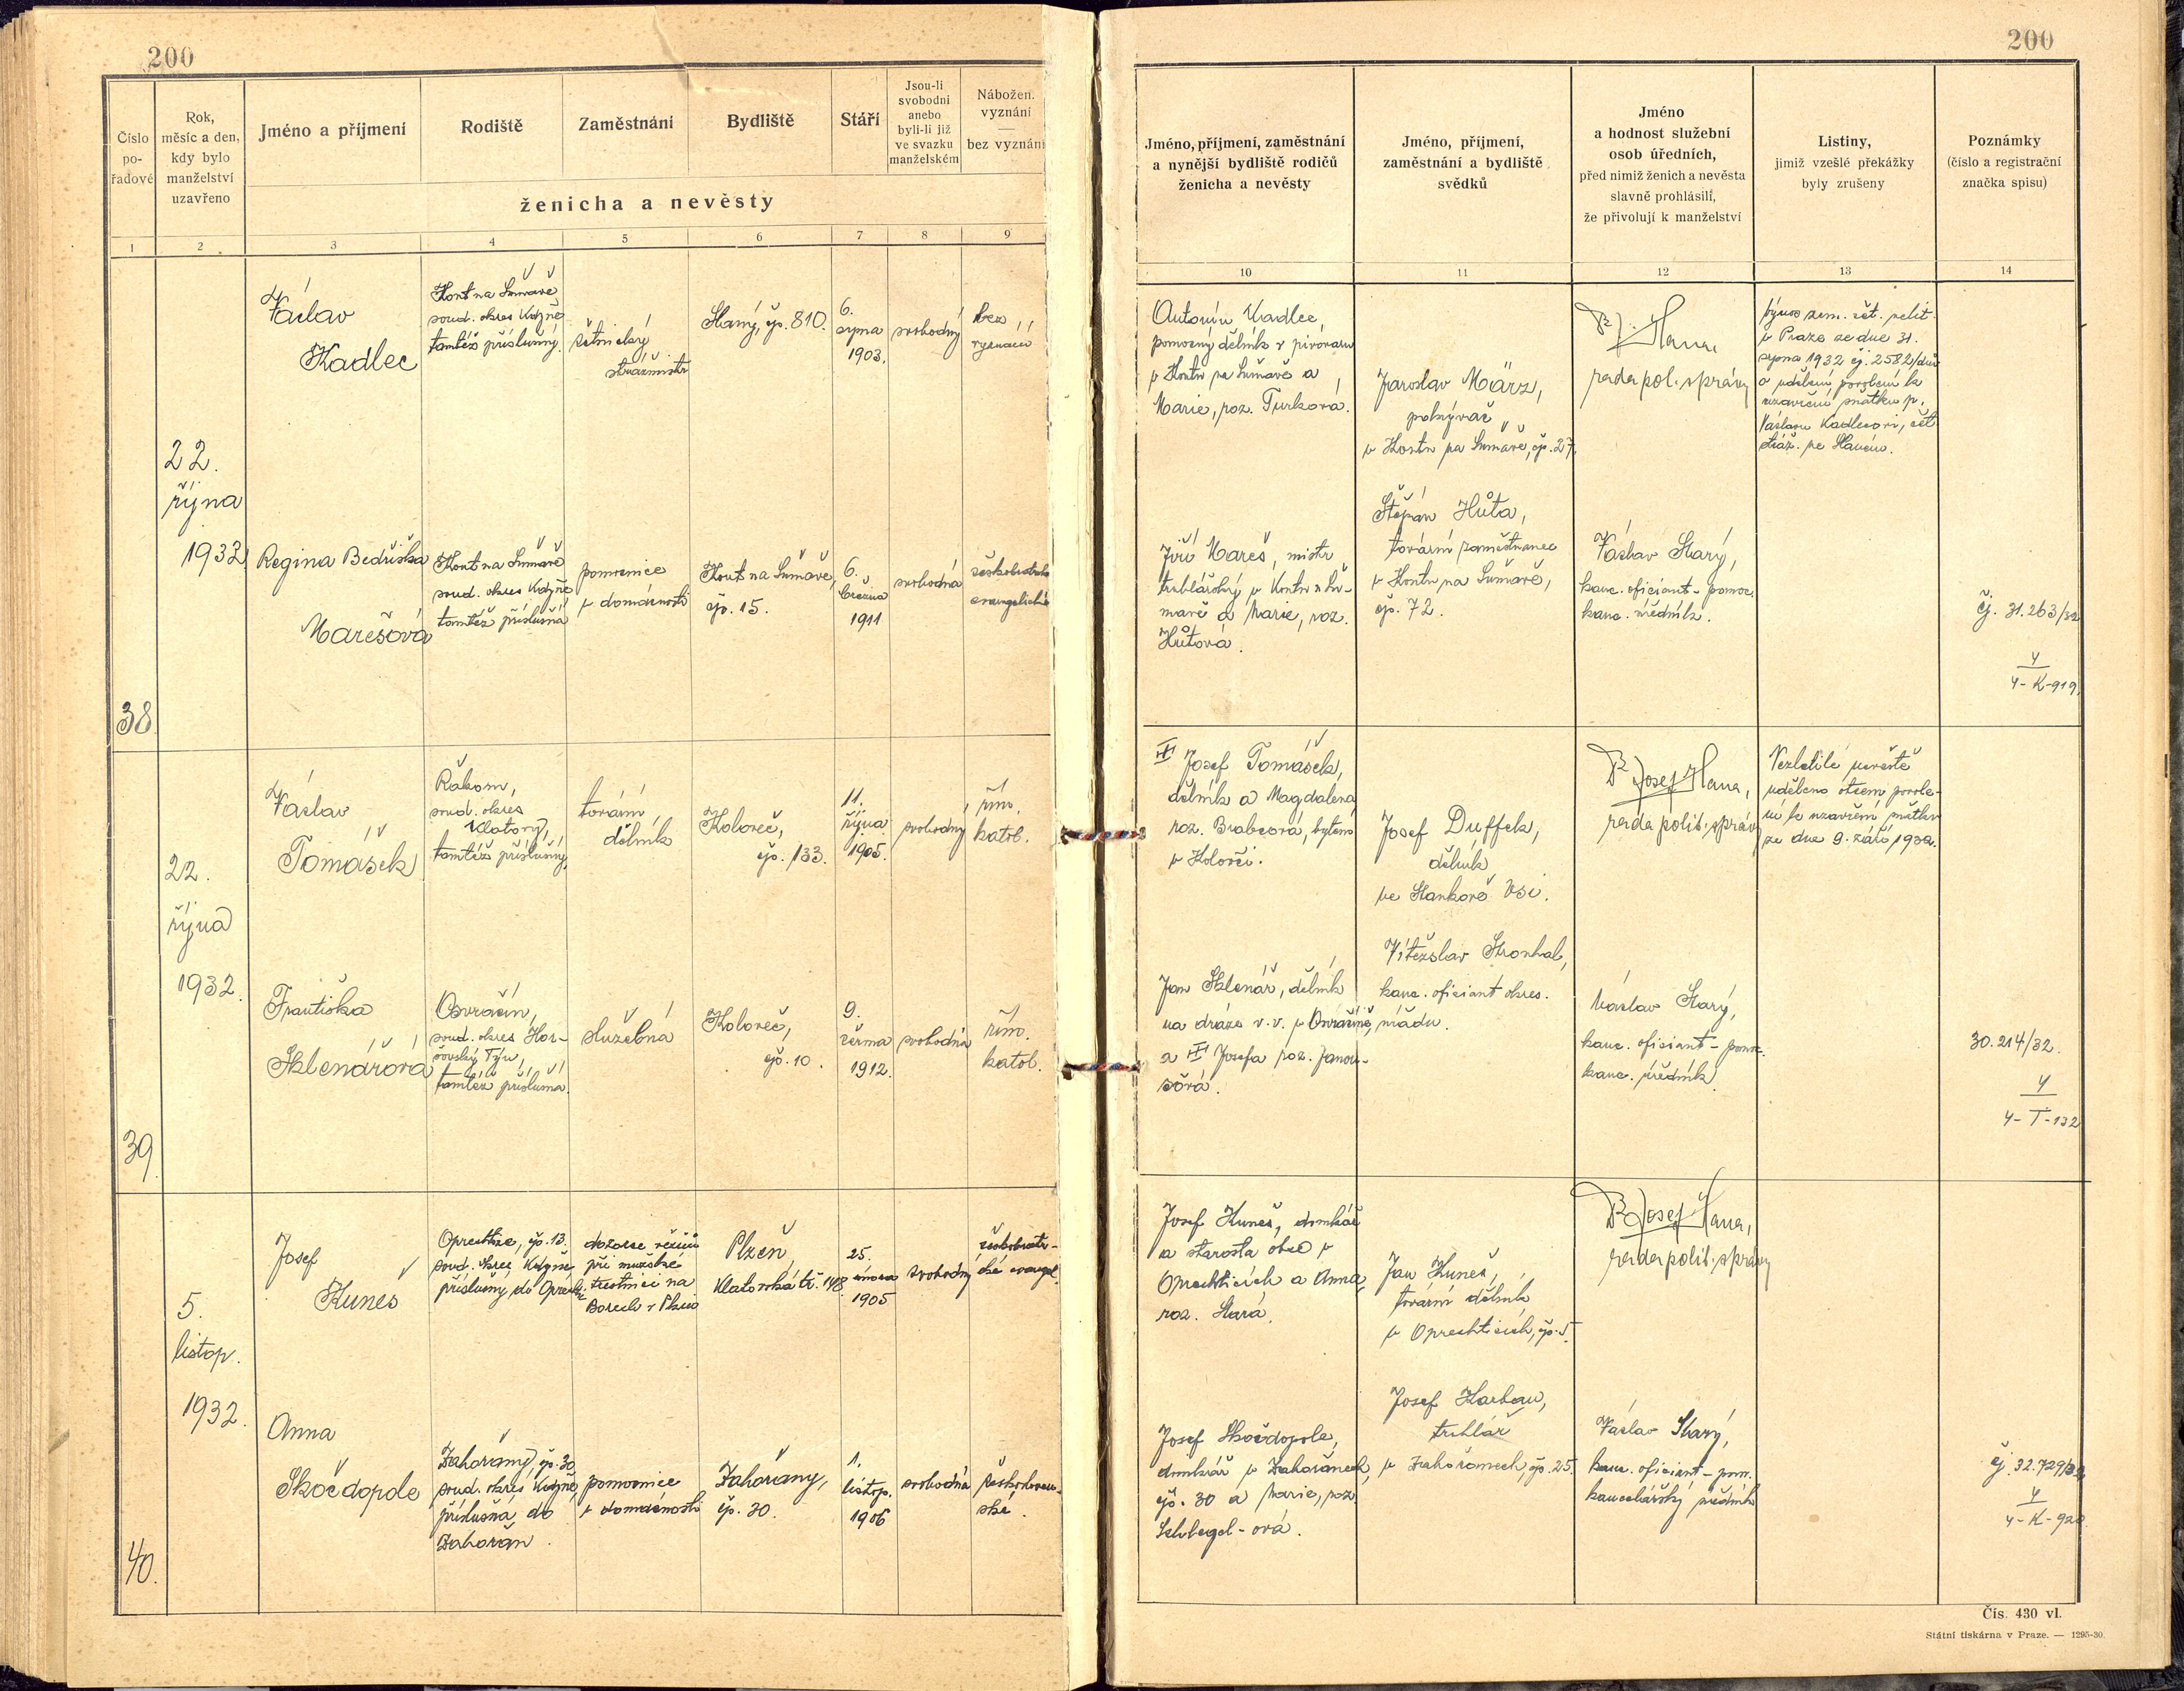 200
Číslo
po-
řadové
Rok,
měsíc a den,
kdy bylo
manželství
uzavřeno
Jméno a příjmení
Rodiště
Zaměstnání
Bydliště
Stáří
Jsou-li
svobodni
anebo
byli-li již
ve svazku
manželském
Nábožen.
vyznání
—
bez vyznání
ženicha a nevěsty
1 2 3 4 5 6 7 8 9
38
22.
října
1932
Václav
Kadlec
Kout na Šumavě
soud. okres Kdyně
tamtéž příslušný.
četnický
strážmistr
Slaný, čp. 810.
6.
srpna
1903.
svobodný
bez
vyznání
Regina Bedřiška
Marešová
Kout na Šumavě
soud. okres Kdyně,
tamtéž příslušná
pomocnice
v domácnosti
Kout na Šumavě,
čp. 15.
6.
března
1911
svobodná
českobratrsko
evangelické
39
22.
října
1932.
Václav
Tomášek
Řakom,
soud. okres
Klatovy,
tamtéž příslušný,
tovární
dělník
Koloveč,
čp. 133.
11.
října
1905.
svobodný
řím.
katol.
Františka
Sklenářová
Osvračín,
soud. okres Hor-
šovský Týn,
tamtéž příslušná.
služebná
Koloveč,
čp. 10.
9.
června
1912.
svobodná
řím.
katol.
40.
5.
listop.
1932.
Josef
Kuneš
Oprechtice, čp. 13.
soud. okres Kdyně
příslušný do Oprecht.
dozorce
při mužské
trestnici na
Borech v Plzni
Plzeň,
Klatovská tř. 148.
25.
února
1905
svobodný
českobratr-
ské evangel.
Anna
Skočdopole
Zahořany, čp. 30
soud. okres Kdyně,
příslušná do
Zahořan.
pomocnice
v domácnosti
Zahořany,
čp. 30.
1.
listop.
1906
svobodná
českosloven-
ské.
200
Jméno, příjmení, zaměstnání
a nynější bydliště rodičů
ženicha a nevěsty
Jméno, příjmení,
zaměstnání a bydliště
svědků
Jméno
a hodnost služební
osob úředních,
před nimiž ženich a nevěsta
slavně prohlásili,
že přivolují k manželství
Listiny,
jimiž vzešlé překážky
byly zrušeny
Poznámky
(číslo a registrační
značka spisu)
10 11 12 13 14
Antonín Kadlec,
pomocný dělník v pivovaru
v Koutu na Šumavě a
Marie, roz. Turková.
Jiří Mareš, mistr
truhlářský v Koutu n Šu-
mavě a Marie, roz.
Hůtová.
Jaroslav März,
pokrývač
v Koutu na Šumavě, čp. 27.
Štěpán Hůta,
tovární zaměstnanec
v Koutu na Šumavě,
čp. 72.
Dr J. Hana,
rada pol. správy
Václav Starý,
kanc. oficiant - pomoc.
kanc. úředník.
Výnos zem. čet. velit.
v Praze ze dne 31.
srpna 1932 čj. 2582/
o udělení povolení k
uzavření sňatku p.
Václavu Kadlecovi, čet.
stráž. ve Slaném.
čj. 31.263/32
4
4-K-919.
Josef Tomášek,
dělník a Magdalena
roz. Brabcová, bytem
v Kolovči.
Jan Sklenář, dělník
na dráze v.v. v Osvračíně,
a Josefa roz. Janou-
šová.
Josef Duffek,
dělník
ve Staňkově Vsi.
Vítězslav Strouhal,
kanc. oficiant okres.
úřadu.
Dr Josef Hana,
rada polit. správy
Václav Starý,
kanc. oficiant - pomoc.
kanc. úředník.
Nezletilé nevěstě
uděleno otcem povole-
ní k uzavření sňatku
ze dne 9. září 1932.
30.214/32.
4
4-T-132
Josef Kuneš, domkář
a starosta obce v
Oprechticích a Anna,
roz. Stará.
Josef Skočdopole,
domkář v Zahořanech,
čp. 30 a Marie, roz.
Schlegel-ová.
Jan Kuneš,
tovární dělník
v Oprechticích, čp. 5.
Josef
truhlář
v Zahořanech, čp. 25.
Dr Josef Hana,
rada polit. správy
Václav Starý,
kanc. oficiant - pom.
kancelářský úředník
čj. 32.727/32
4
4-K-920.
Čís. 430 vl.
Státní tiskárna v Praze. — 1295-30.